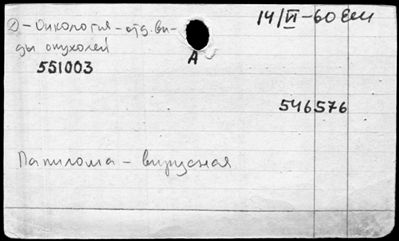 2) – Онкология – отд. ви-
ды опухолей
551003
А
14/VI – 60 Ем
546576
Папилома – вирусная